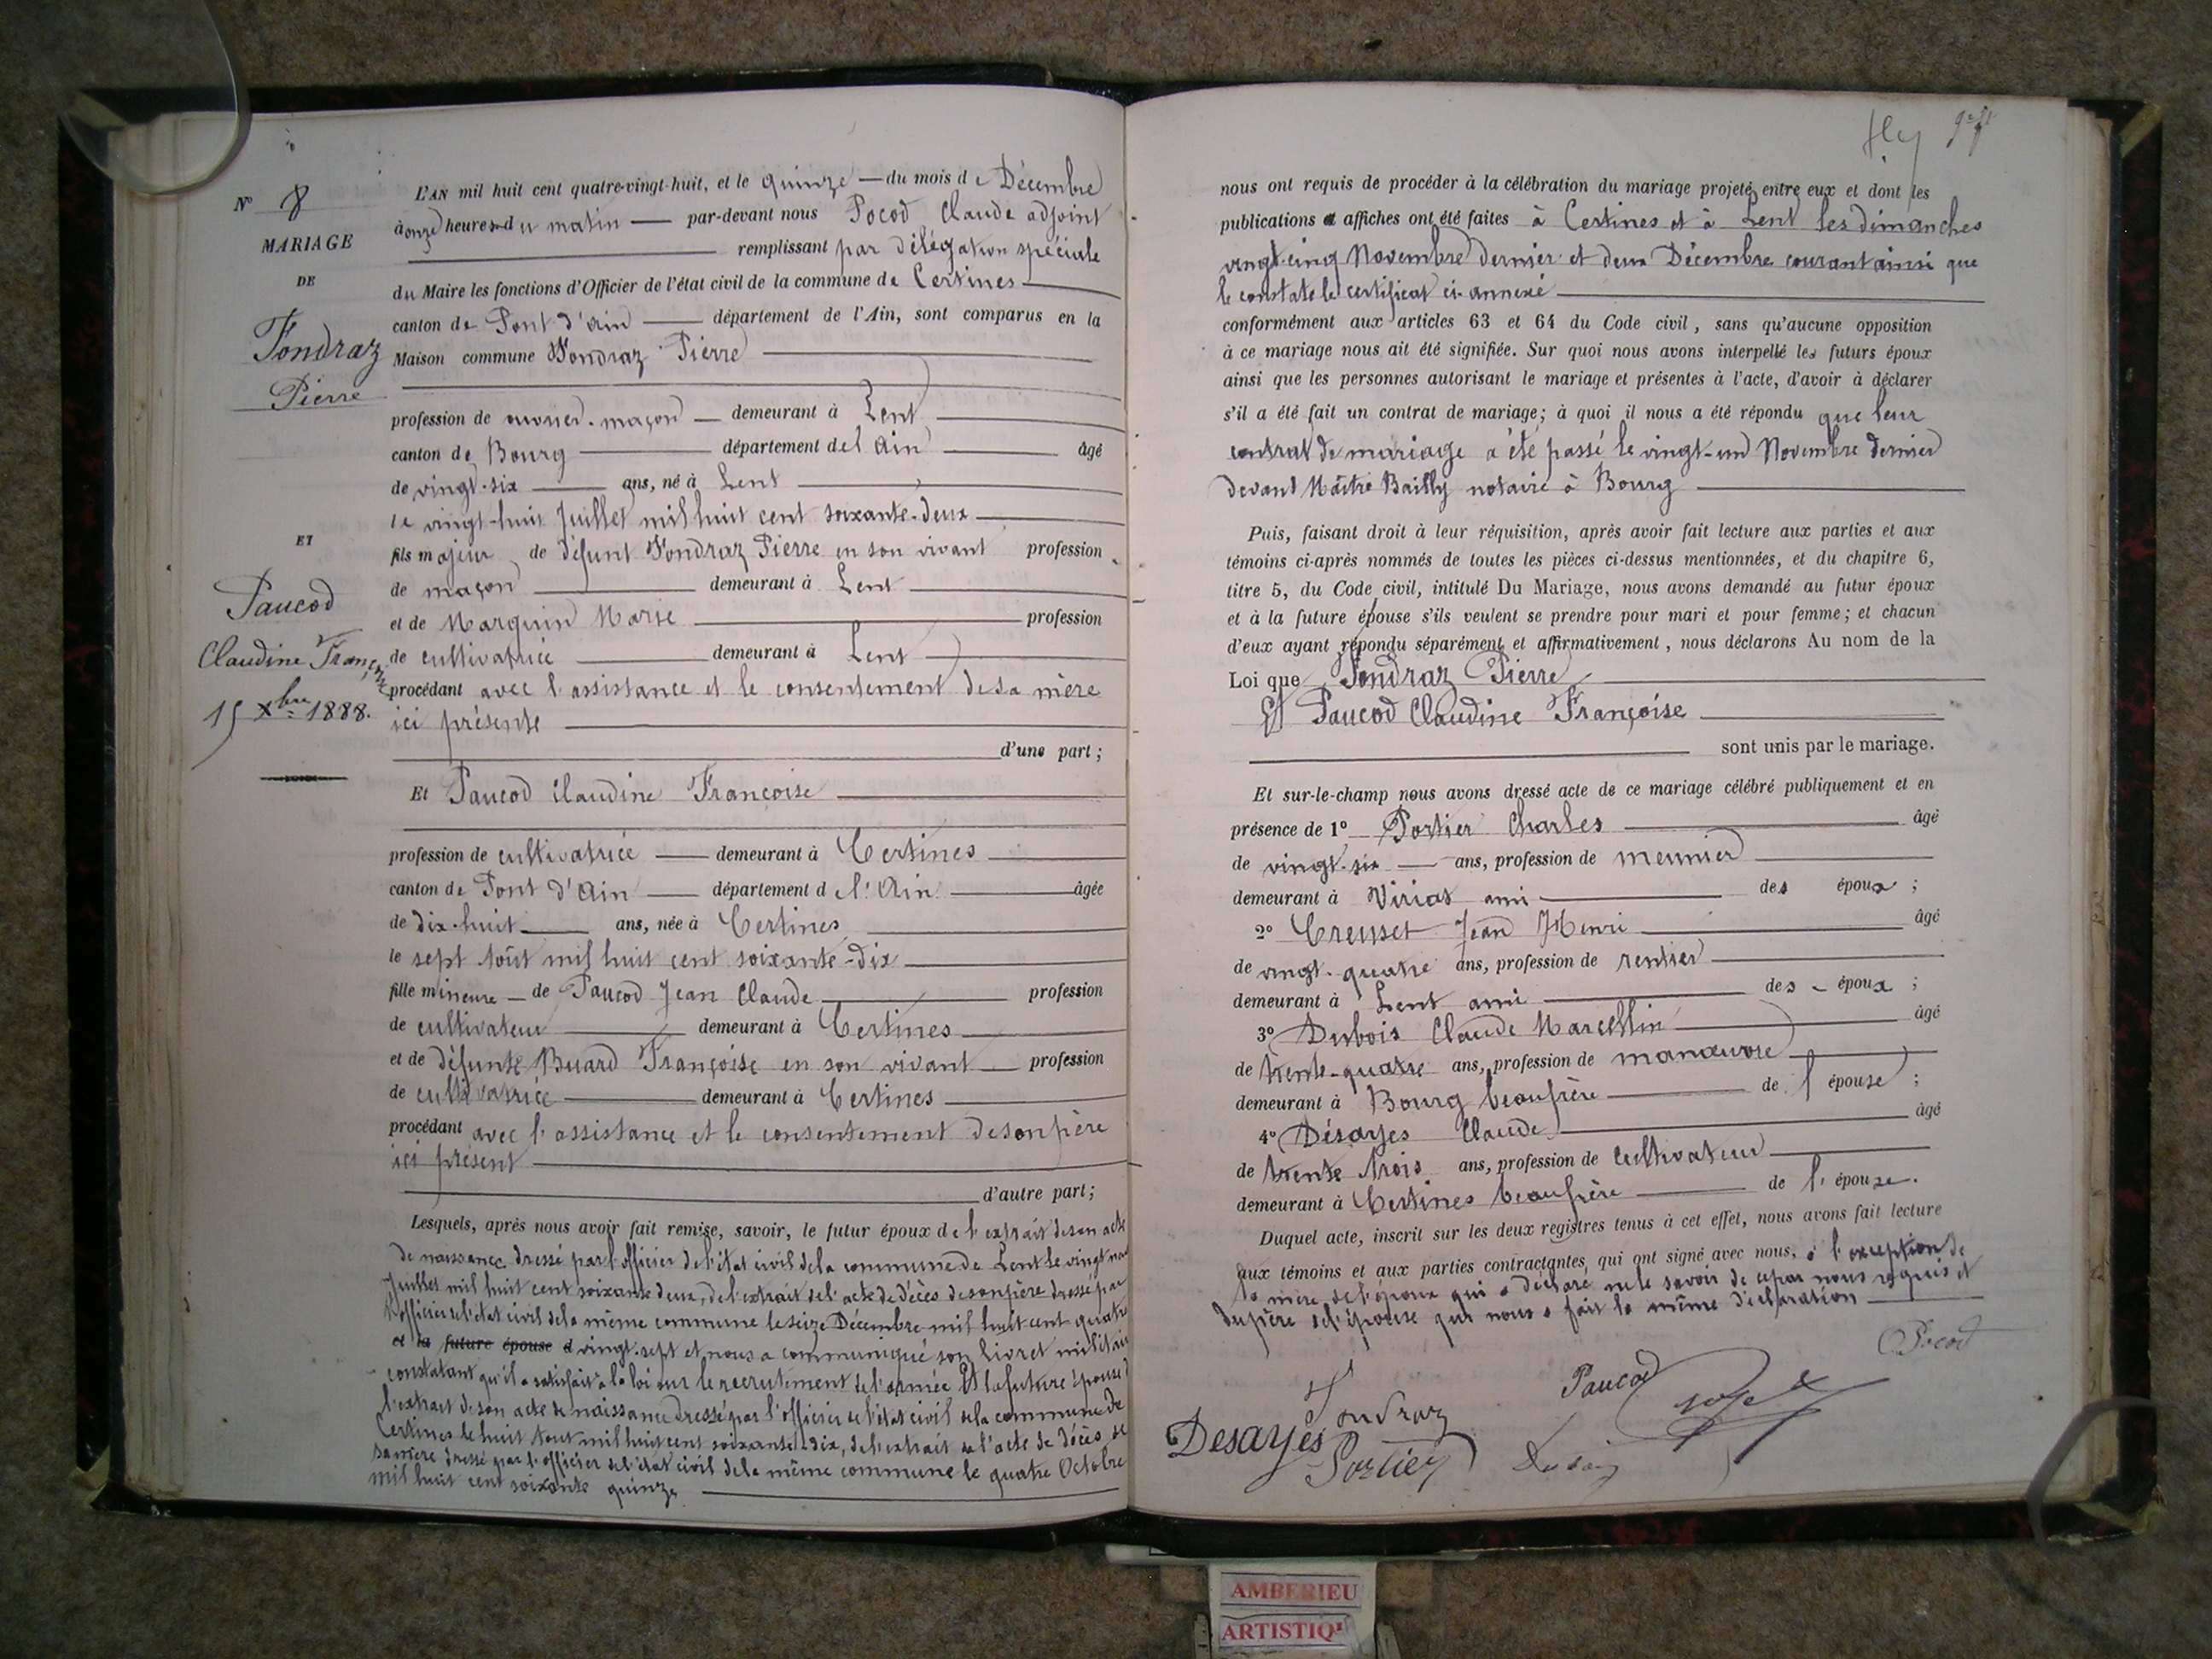 N° 8
MARIAGE
DE
Fondraz
Pierre
ET
Paucod
Claudine Françoise
15 Xbre 1888.
L'AN mil huit cent quatre-vingt-huit, et le quinze du mois de Décembre
à onze heures du matin par-devant nous Pocod Claude adjoint
remplissant par délégation spéciale
du Maire les fonctions d'Officier de l'état civil de la commune de Certines
canton de Pont d'Ain département de l'Ain, sont comparus en la
Maison commune Fondraz Pierre
profession de ouvrier-maçon demeurant à Lent
canton de Bourg département de l'Ain âgé
de vingt-six ans, né à Lent
le vingt-huit Juillet mil huit cent soixante-deux
fils majeur de défunt Fondraz Pierre en son vivant profession
de maçon demeurant à Lent
et de Marguin Marie profession
de cultivatrice demeurant à Lent
procédant avec l'assistance et le consentement de sa mère
ici présente
d'une part;
Et Paucod Claudine Françoise
profession de cultivatrice demeurant à Certines
canton de Pont d'Ain département de l'Ain âgée
de dix-huit ans, née à Certines
le sept Août mil huit cent soixante-dix
fille mineure de Paucod Jean Claude profession
de cultivateur demeurant à Certines
et de défunte Buard Françoise en son vivant profession
de cultivatrice demeurant à Certines
procédant avec l'assistance et le consentement de son père
ici présent
d'autre part;
Lesquels, après nous avoir fait remise, savoir, le futur époux de l'extrait de son acte
de naissance dressé par l'officier de l'état civil de la commune de Lent le vingt
Juillet mil huit cent soixante deux, de l'extrait de l'acte de décès de son père dressé par
l'officier de l'état civil de la même commune le seize Décembre mil huit cent quatre
et la future épouse d vingt-sept et nous a communiqué son livret militaire
constatant qu'il a satisfait à la loi sur le recrutement de l'armée Et la future épouse
l'extrait de son acte de naissance dressé par l'officier de l'état civil de la commune de
Certines le huit Août mil huit cent soixante-dix, de l'extrait de l'acte de décès de
sa mère dressé par l'officier de l'état civil de la même commune le quatre Octobre
mil huit cent soixante quinze
nous ont requis de procéder à la célébration du mariage projeté entre eux et dont les
publications et affiches ont été faites à Certines et à Lent les dimanches
vingt-cinq Novembre dernier et deux Décembre courant ainsi que
le constate le certificat ci-annexé
conformément aux articles 63 et 64 du Code civil, sans qu'aucune opposition
à ce mariage nous ait été signifiée. Sur quoi nous avons interpellé les futurs époux
ainsi que les personnes autorisant le mariage et présentes à l'acte, d'avoir à déclarer
s'il a été fait un contrat de mariage; à quoi il nous a été répondu que leur
contrat de mariage a été passé le vingt-un Novembre dernier
devant Maître Bailly notaire à Bourg
Puis, faisant droit à leur réquisition, après avoir fait lecture aux parties et aux
témoins ci-après nommés de toutes les pièces ci-dessus mentionnées, et du chapitre 6,
titre 5, du Code civil, intitulé Du Mariage, nous avons demandé au futur époux
et à la future épouse s'ils veulent se prendre pour mari et pour femme; et chacun
d'eux ayant répondu séparément et affirmativement, nous déclarons Au nom de la
Loi que Fondraz Pierre
Et Paucod Claudine Françoise
sont unis par le mariage.
Et sur-le-champ nous avons dressé acte de ce mariage célébré publiquement et en
présence de 1° Portier Charles âgé
de vingt-six ans, profession de meunier
demeurant à Viriat ami des époux;
2° Creuset Jean Henri âgé
de vingt-quatre ans, profession de rentier
demeurant à Lent ami des époux;
3° Dubois Claude Marcellin âgé
de trente-quatre ans, profession de manœuvre
demeurant à Bourg beaufrère de l'épouse;
4° Désayes Claude âgé
de trente trois ans, profession de cultivateur
demeurant à Certines beaufrère de l'épouse.
Duquel acte, inscrit sur les deux registres tenus à cet effet, nous avons fait lecture
aux témoins et aux parties contractantes, qui ont signé avec nous, à l'exception de
la mère de l'époux qui a déclaré ne le savoir de ce par nous requis et
du père de l'épouse qui nous a fait la même déclaration
Pocod
Paucod
Fondraz
Desayes
Portier
AMBERIEU
ARTISTIQ